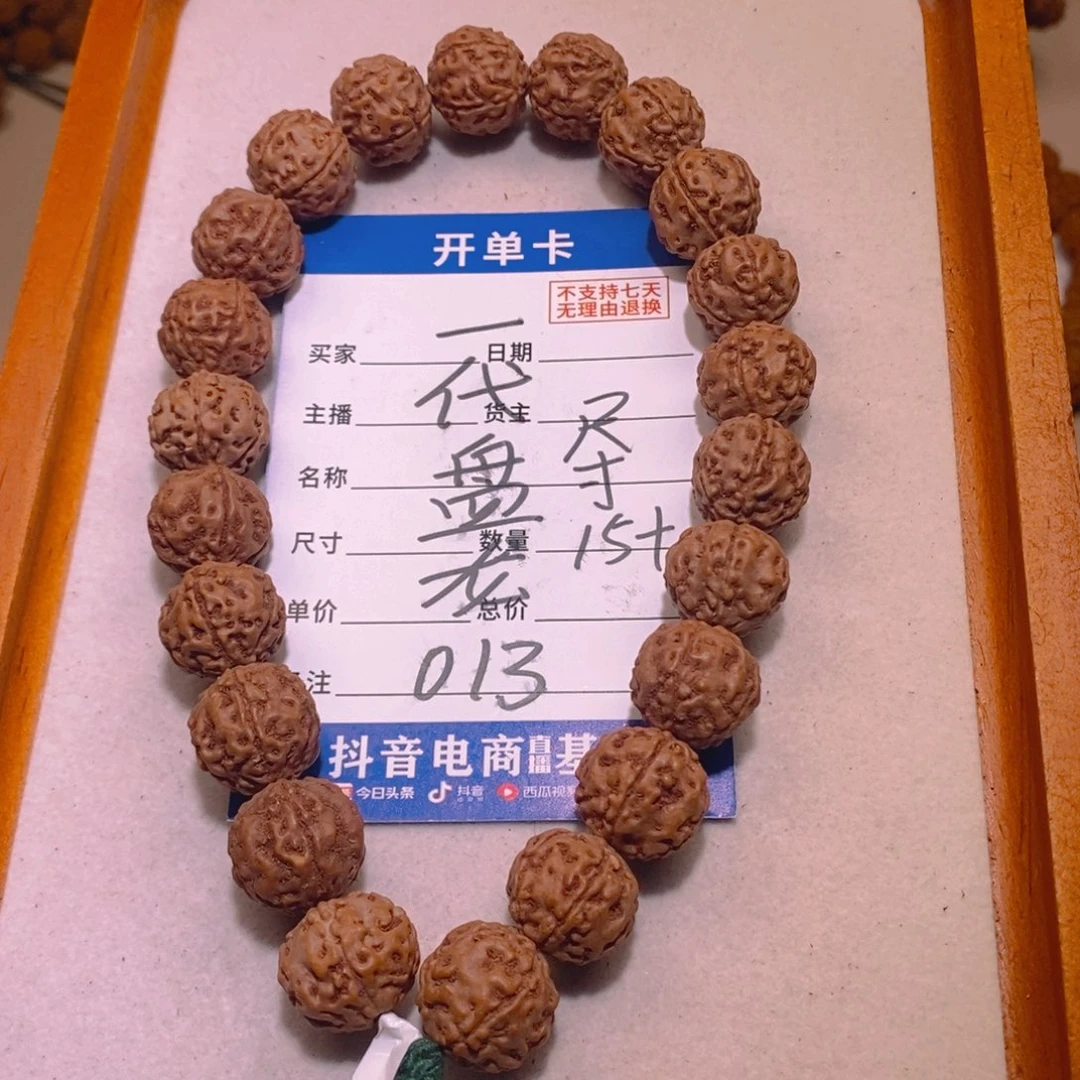 开单卡
不支持七天
无理由退换
买家 日期
主播 货主
名称
尺寸 数量
单价 总价
注
一代盘老
尺寸
15+
013
抖音电商直播基
今日头条 抖音 西瓜视